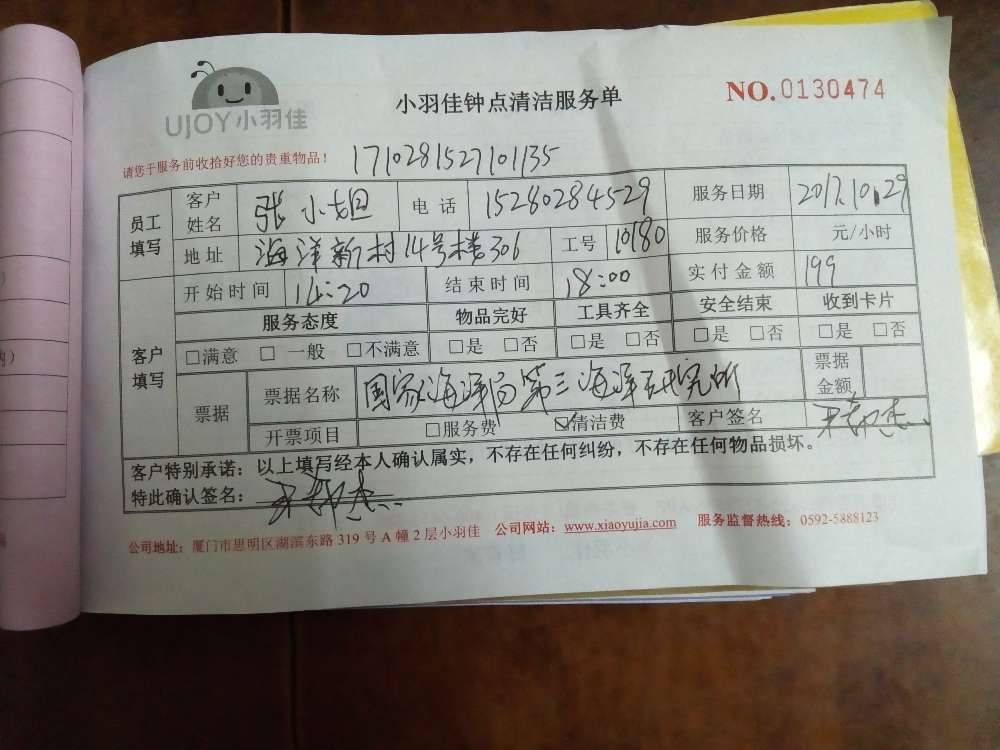 UJOY小羽佳
小羽佳钟点清洁服务单
NO.0130474
请您于服务前收拾好您的贵重物品!
171028152710 1135
员工填写 客户姓名 张小姐 电话 15280284529 服务日期 2017.10.29
地址 海洋新村14号楼306 工号 10180 服务价格 元/小时
客户填写 开始时间 14:20 结束时间 18:00 实付金额 199
服务态度 物品完好 工具齐全 安全结束 收到卡片
□满意 □一般 □不满意 □是 □否 □是 □否 □是 □否 □是 □否
票据 票据名称 国家海洋局第三海洋研究所 票据金额
开票项目 □服务费 ☑清洁费 客户签名
客户特别承诺:以上填写经本人确认属实,不存在任何纠纷,不存在任何物品损坏。
特此确认签名:
公司地址:厦门市思明区湖滨东路 319 号 A 幢 2 层小羽佳 公司网站:www.xiaoyujia.com 服务监督热线:0592-5888123